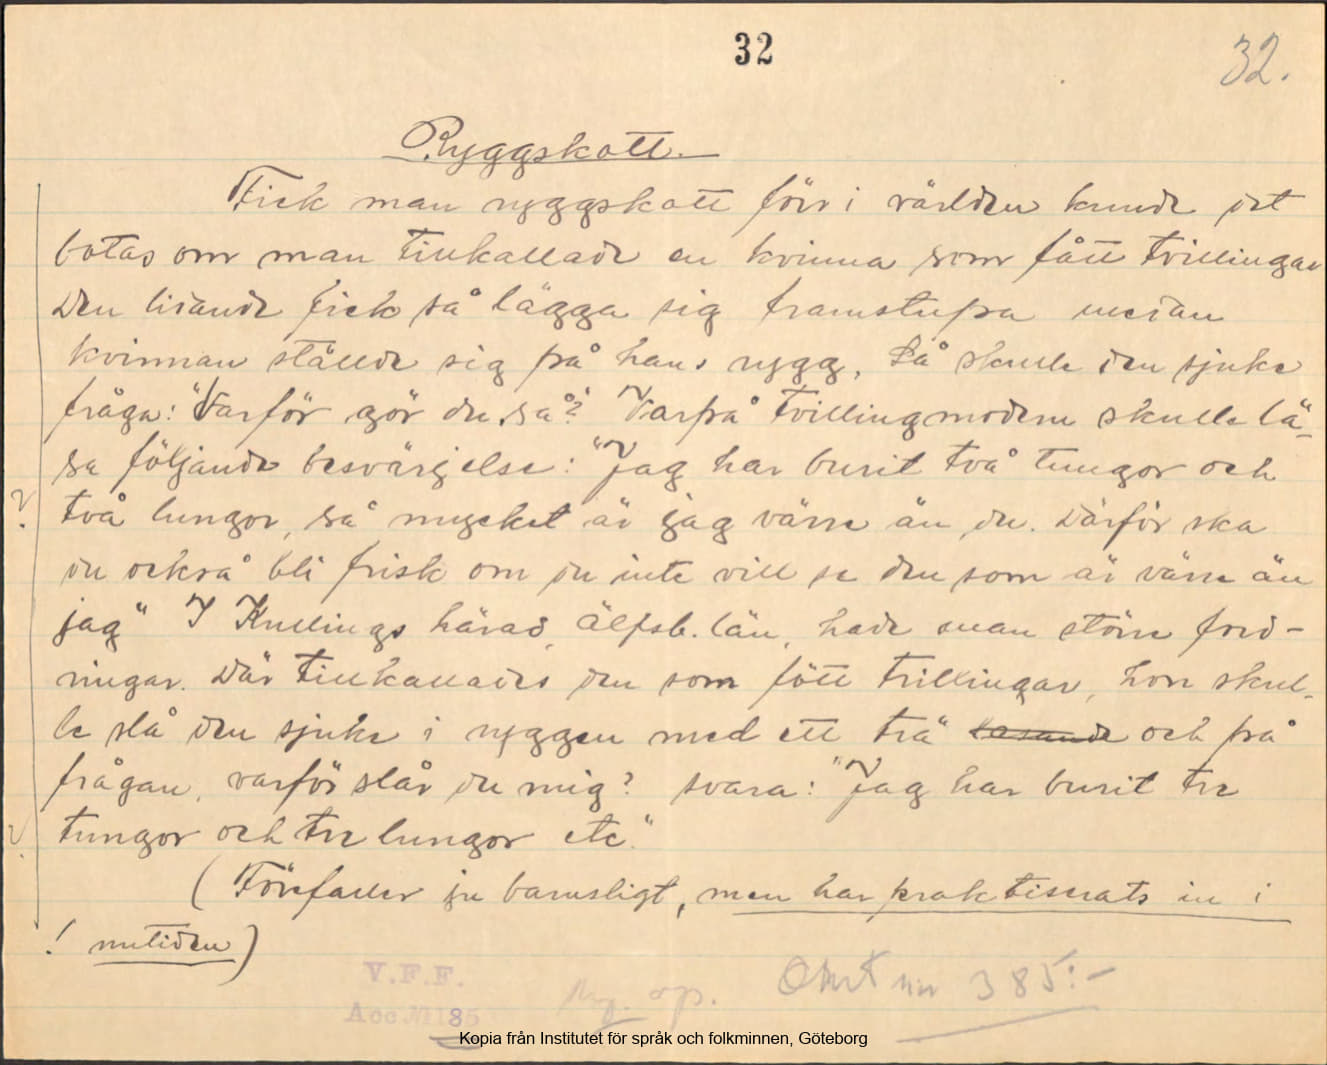 32
32.
Ryggskott.
Fick man ryggskott förr i världen kunde det
botas om man tillkallade en kvinna som fått tvillingar
Den lidande fick så lägga sig framstupa medan
kvinnan ställde sig på hans rygg. Så skulle den sjuke
fråga: "Varför gör du så?" Varpå tvillingmodern skulle lä-
sa följande besvärjelse: "Jag har burit två tungor och
två lungor, så mycket är jag värre än du. Därför ska
du också bli frisk om du inte vill se den som är värre än
jag" I Kullings härad, Älfsb. län, hade man större ford-
ringar. Där tillkallades den som fött trillingar, hon skul-
le slå den sjuke i ryggen med ett trä och på
frågan, varför slår du mig? svara: "Jag har burit tre
tungor och tre lungor etc."
(Förefaller ju barnsligt, men har praktiserats in i
! nutiden)
V.F.F.
Acc. № 1185
385:-
Kopia från Institutet för språk och folkminnen, Göteborg